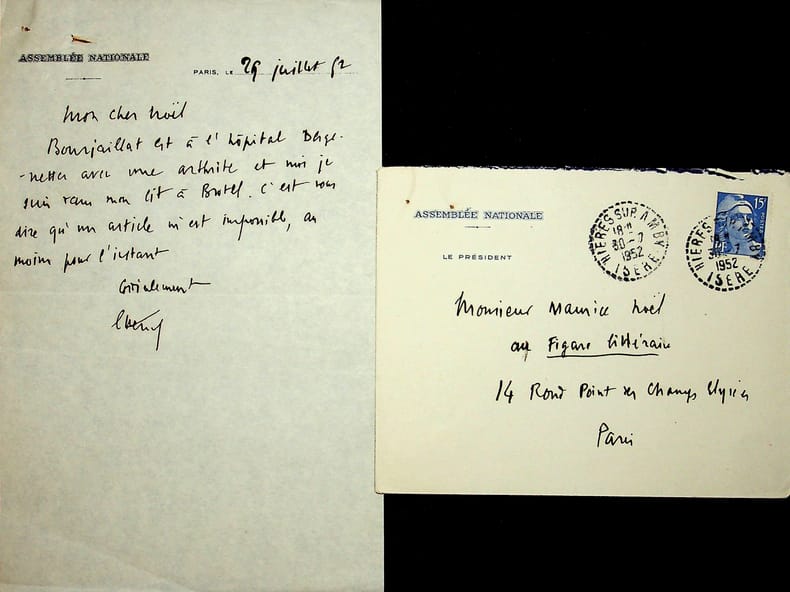 ASSEMBLÉE NATIONALE
PARIS, LE 29 juillet 52
Mon cher Noël
Bourjaillat est à l'hôpital Berge-
-netter avec une arthrite et moi je
suis dans mon lit à Brotel. C'est vous
dire qu'un article m'est impossible, au
moins pour l'instant
Cordialement
ASSEMBLÉE NATIONALE
LE PRÉSIDENT
HIERES SUR AMBY
18H
30-7
1952
ISERE
15F
RF
HIERES SUR AMBY
18H
30-7
1952
ISERE
Monsieur Maurice Noël
au Figaro littéraire
14 Rond Point des Champs Elysées
Paris